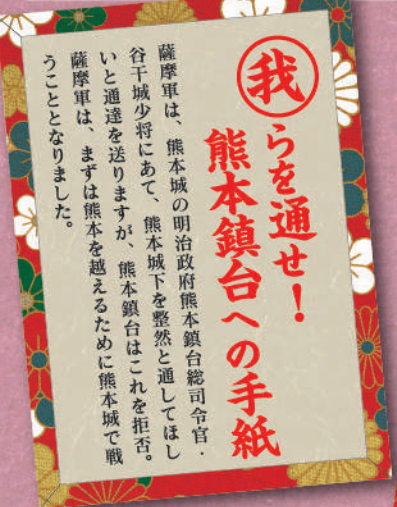 我らを通せ！
熊本鎮台への手紙
薩摩軍は、熊本城の明治政府熊本鎮台総司令官・
谷干城少将にあて、熊本城下を整然と通してほし
いと通達を送りますが、熊本鎮台はこれを拒否。
薩摩軍は、まずは熊本を越えるために熊本城で戦
うこととなりました。